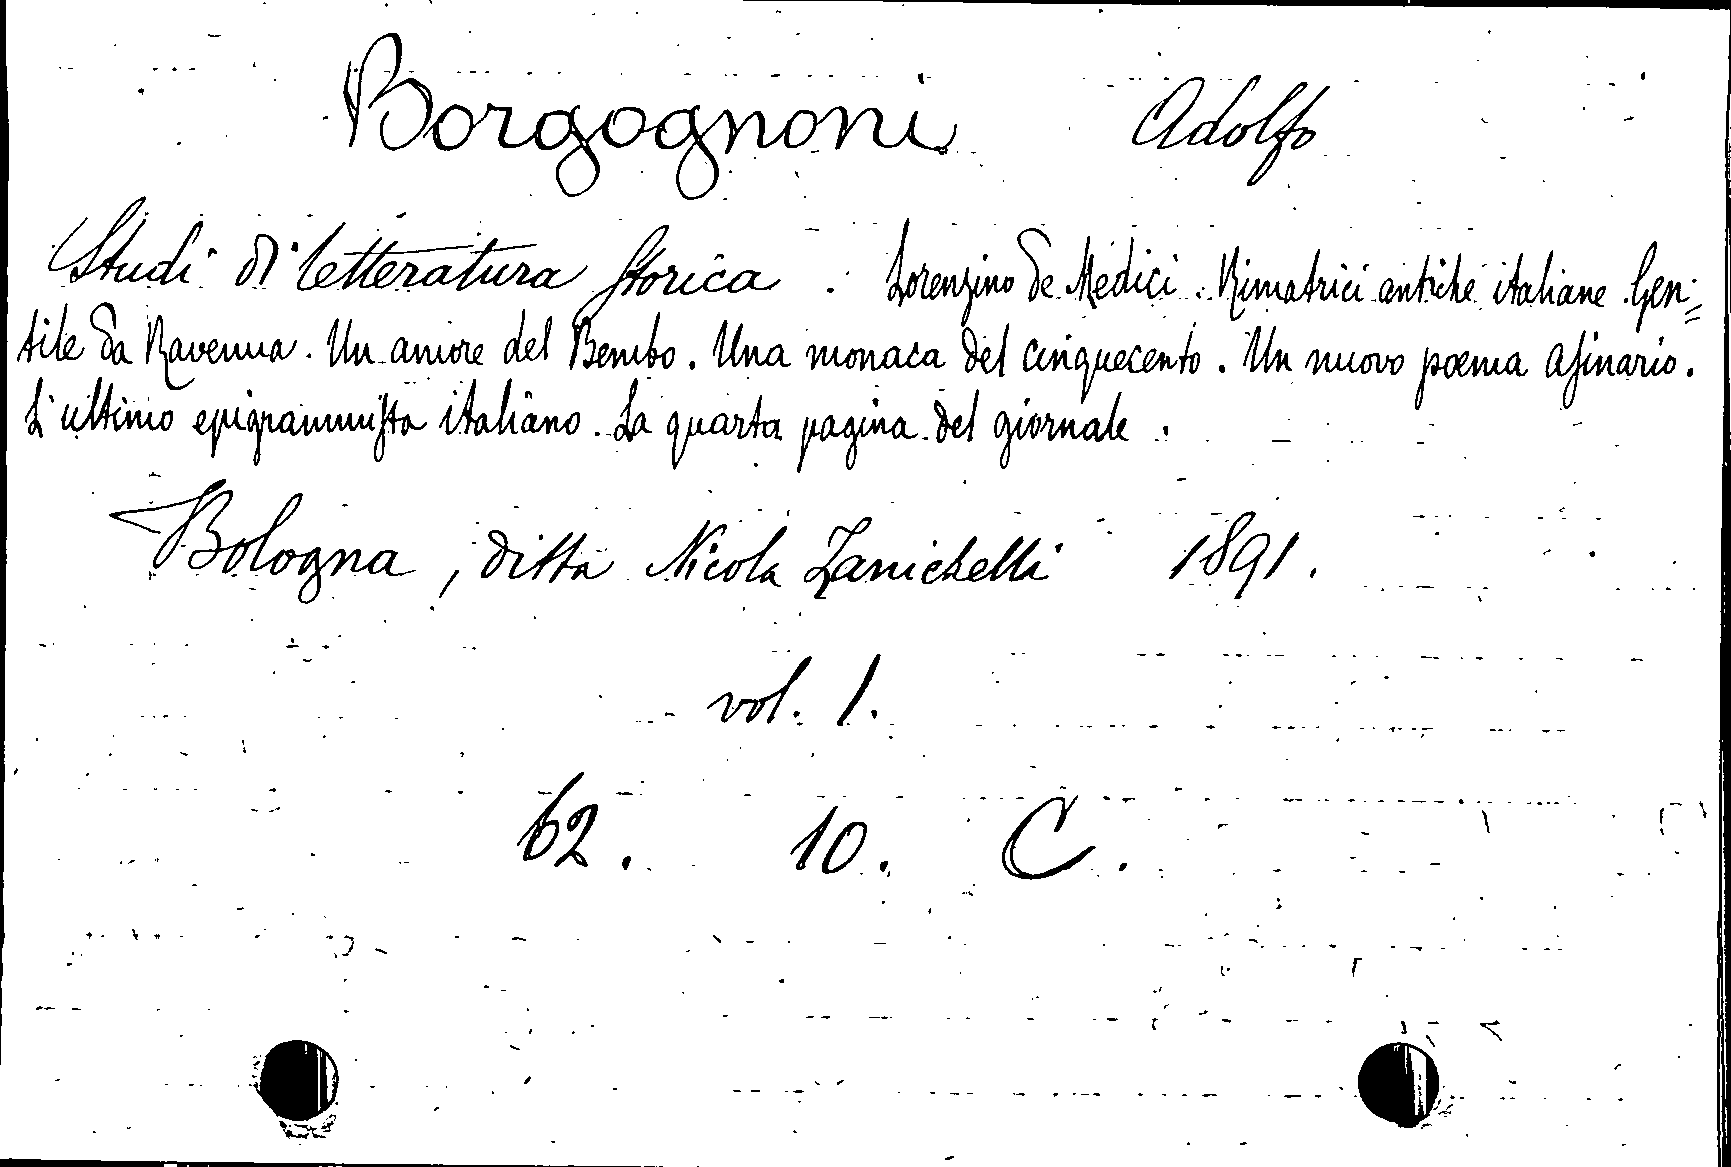 Borgognoni Adolfo
Studi di letteratura storica. Lorenzino de Medici. Rimatrici antiche italiane. Gen=
tile da Ravenna. Un amore del Bembo. Una monaca del cinquecento. Un nuovo poema asinario.
L'ultimo epigrammista italiano. La quarta pagina del giornale.
Bologna, ditta Nicola Zanichelli 1891.
vol. 1.
62. 10. C.